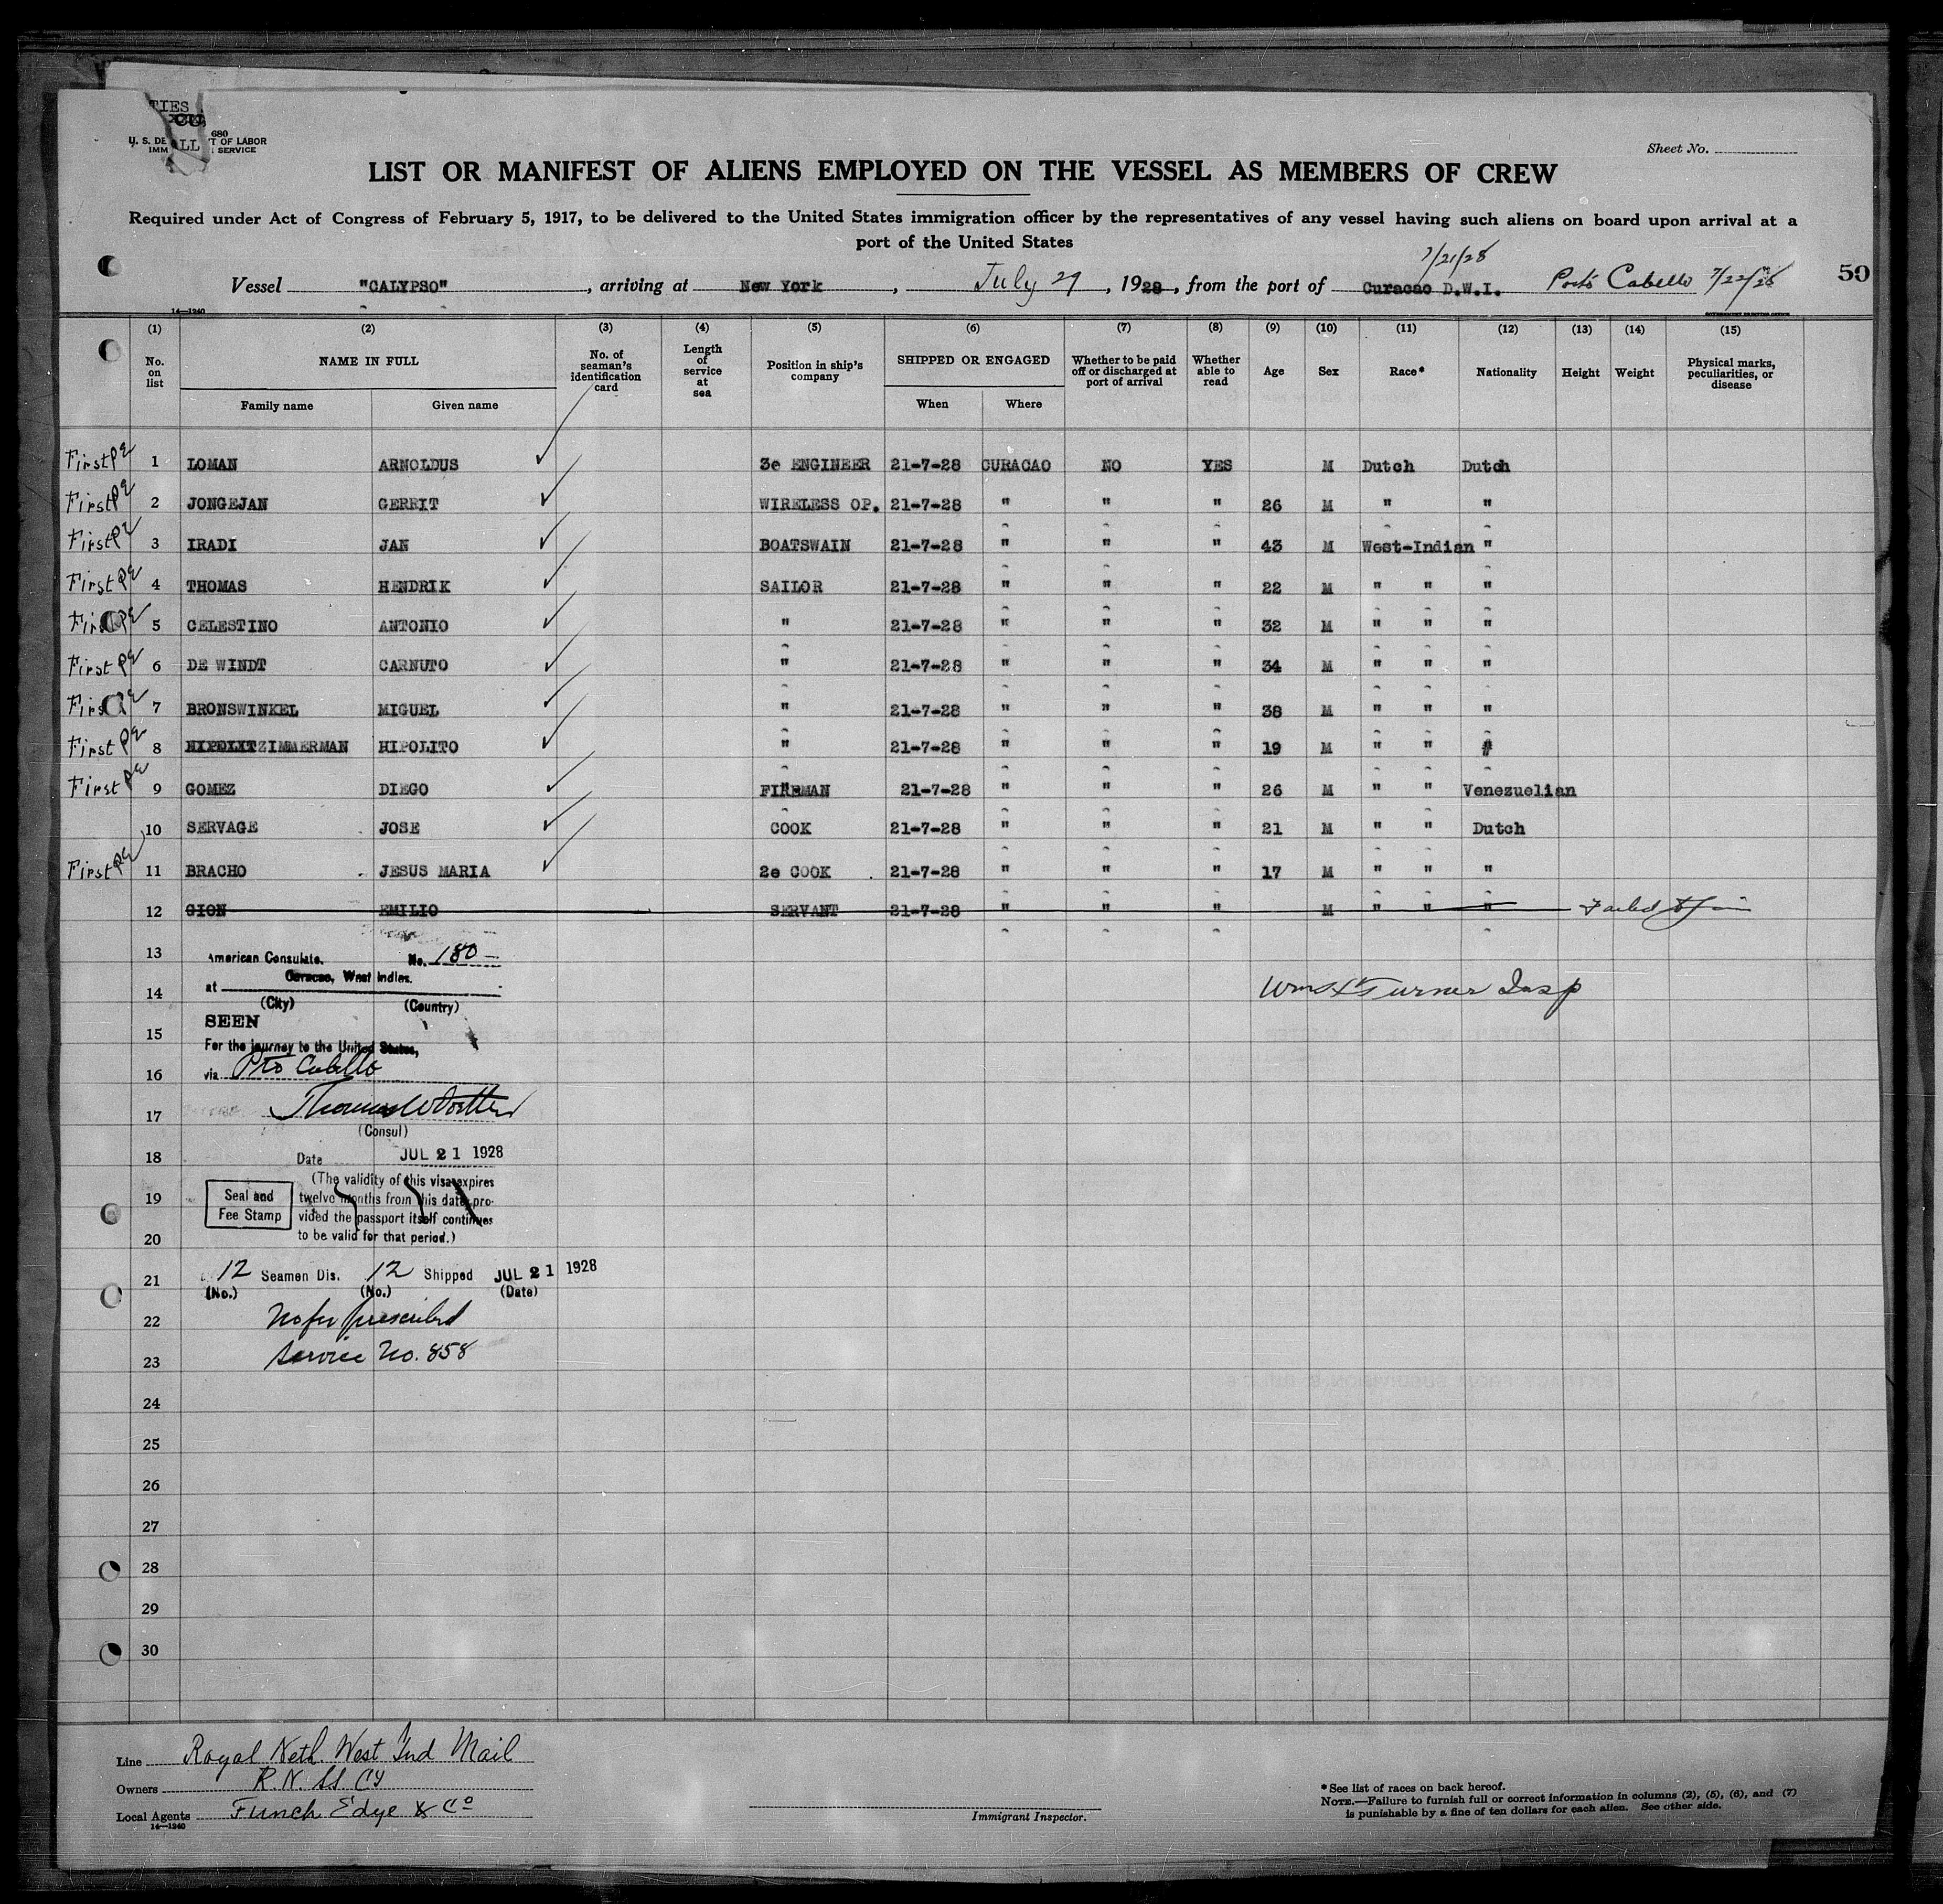 TIES
CO,
ALL
680
U. S. DE T OF LABOR
IMM SERVICE
Sheet No.
LIST OR MANIFEST OF ALIENS EMPLOYED ON THE VESSEL AS MEMBERS OF CREW
Required under Act of Congress of February 5, 1917, to be delivered to the United States immigration officer by the representatives of any vessel having such aliens on board upon arrival at a
port of the United States
7/21/28
Vessel "CALYPSO", arriving at New York, July 29, 1928, from the port of Curacao D.W.I. Porto Cabello 7/22/28 50
14—1240 GOVERNMENT PRINTING OFFICE
(1) (2) (3) (4) (5) (6) (7) (8) (9) (10) (11) (12) (13) (14) (15)
No. on list NAME IN FULL No. of seaman's identification card Length of service at sea Position in ship's company SHIPPED OR ENGAGED Whether to be paid off or discharged at port of arrival Whether able to read Age Sex Race* Nationality Height Weight Physical marks, peculiarities, or disease
Family name Given name When Where
First 1 LOMAN ARNOLDUS 3e ENGINEER 21-7-28 CURACAO NO YES M Dutch Dutch
First 2 JONGEJAN GERRIT WIRELESS OP. 21-7-28 " " " 26 M " "
First 3 IRADI JAN BOATSWAIN 21-7-28 " " " 43 M West-Indian "
First 4 THOMAS HENDRIK SAILOR 21-7-28 " " " 22 M " " "
First 5 CELESTINO ANTONIO " 21-7-28 " " " 32 M " " "
First 6 DE WINDT CARNUTO " 21-7-28 " " " 34 M " " "
First 7 BRONSWINKEL MIGUEL " 21-7-28 " " " 38 M " " "
First 8 HIPOLIT ZIMMERMAN HIPOLITO " 21-7-28 " " " 19 M " " "
First 9 GOMEZ DIEGO FIREMAN 21-7-28 " " " 26 M " " Venezuelian
10 SERVAGE JOSE COOK 21-7-28 " " " 21 M " " Dutch
First 11 BRACHO JESUS MARIA 2e COOK 21-7-28 " " " 17 M " " "
12 GION EMILIO SERVANT 21-7-28 " " " M " " " Failed to join
13 American Consulate. No. 180
Curacao, West Indies.
14 at
(City) (Country)
Turner Insp
SEEN
15 For the journey to the United States,
16 via Pto Cabello
17
(Consul)
18 Date JUL 21 1928
(The validity of this visa expires
19 Seal and Fee Stamp twelve months from this date, pro-
vided the passport itself continues
20 to be valid for that period.)
21 12 Seamen Dis. 12 Shipped JUL 21 1928
(No.) (No.) (Date)
22 No fee prescribed
23 Service No. 858
24
25
26
27
28
29
30
Line Royal Neth. West Ind Mail
Owners R. N. SS. Cy
Local Agents Funch Edye & Co
14—1240
Immigrant Inspector.
*See list of races on back hereof.
NOTE.—Failure to furnish full or correct information in columns (2), (5), (6), and (7)
is punishable by a fine of ten dollars for each alien. See other side.